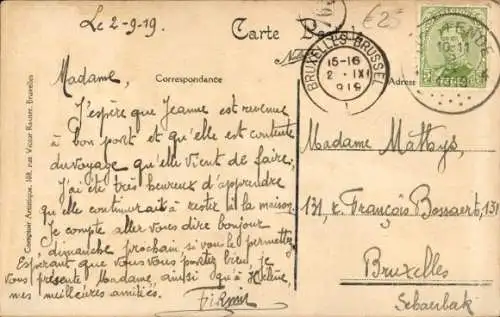 Le 2-9-19.
Carte
€25
BRUXELLES-BRUSSEL
15-16
2 · IX
919
10-11
Correspondance
Adresse
Madame,
J'espère que Jeanne est revenue
à bon port et qu'elle est contente
du voyage qu'elle vient de faire,
J'ai été très heureux d'apprendre
qu'elle continuerait à rester à la maison.
Je compte aller vous dire bonjour
dimanche prochain, si vous le permettez
Espérant que vous vous portez bien, je
vous présente Madame, ainsi qu'à Hélène,
mes meilleures amitiés.
Firmin
Madame Mattys,
131, r. François Bossaert, 131
Bruxelles
Schaerbeek
Comptoir Artistique, 168, rue Victor Rauter, Bruxelles